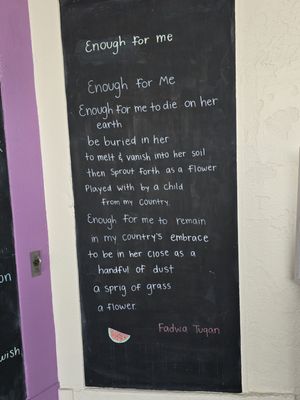 Enough for me
Enough for Me
Enough for me to die on her
earth
be buried in her
to melt & vanish into her soil
then sprout forth as a flower
Played with by a child
from my country.
Enough for me to remain
in my country's embrace
to be in her close as a
handful of dust
a sprig of grass
a flower.
Fadwa Tuqan
on
wish